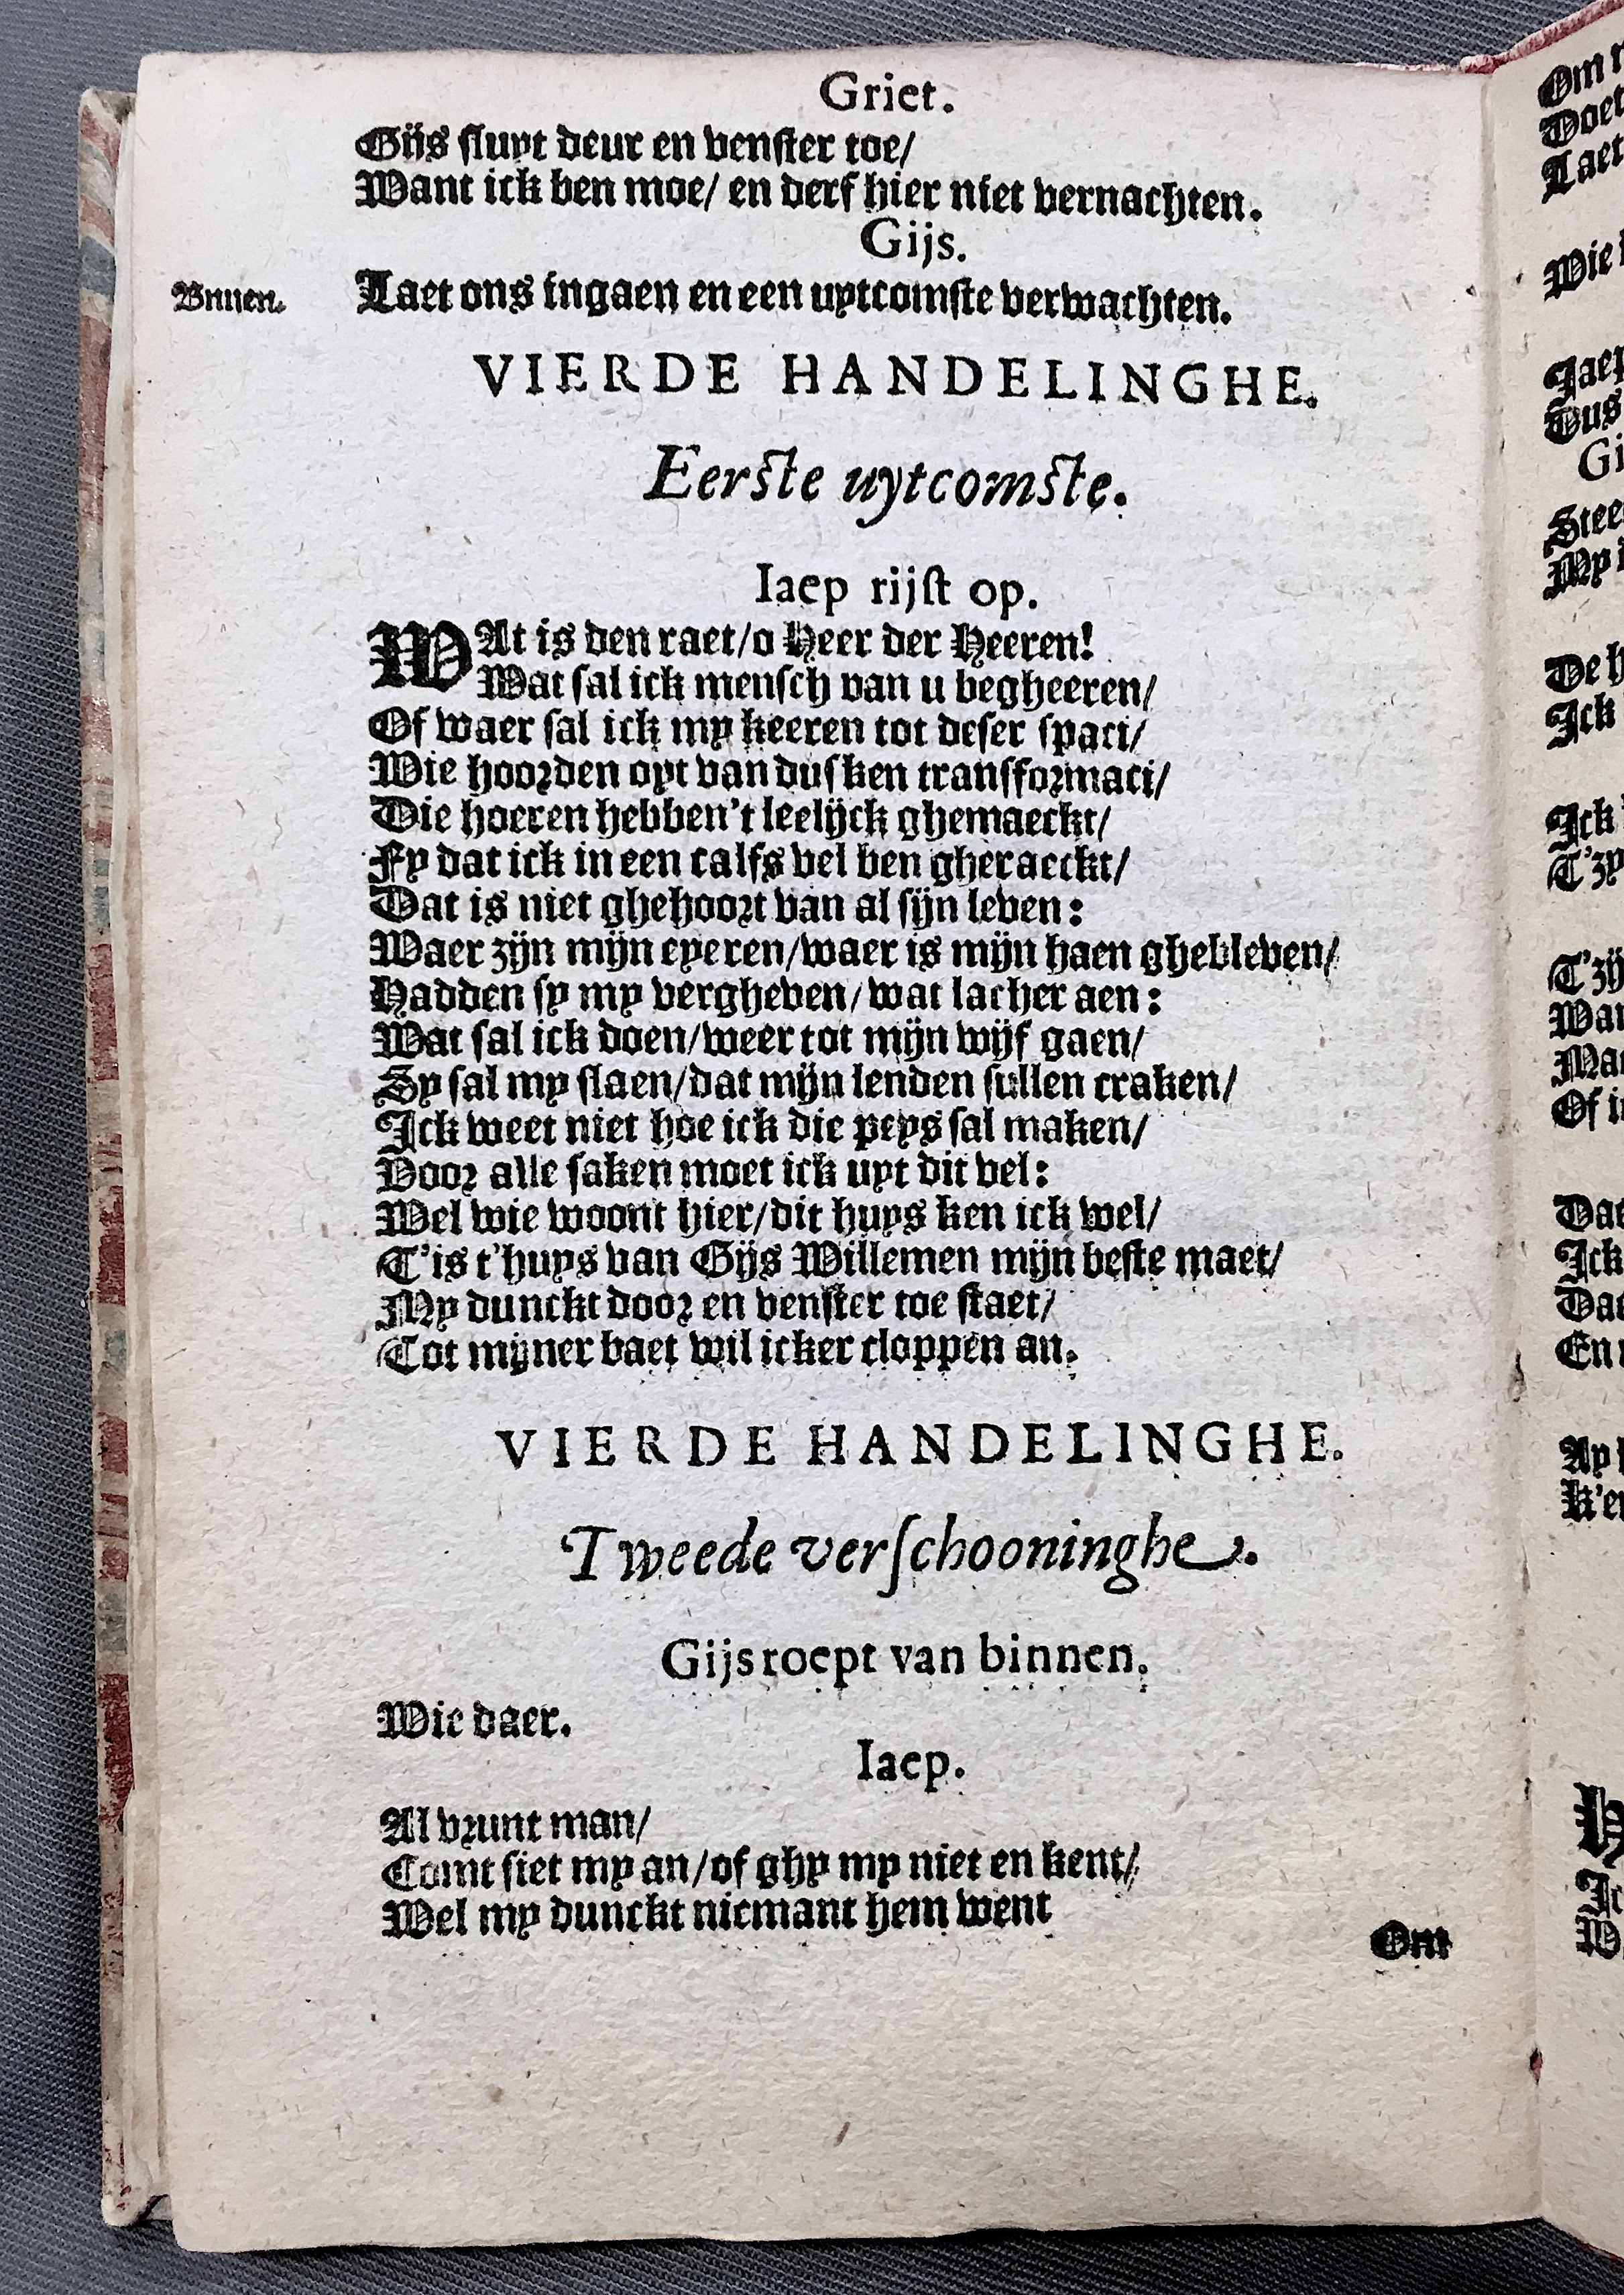 Griet.
Gijs sluyt deur en venster toe/
Want ick ben moe/ en derf hier niet vernachten.
Gijs.
Bnnen. Laet ons ingaen en een uytcomste verwachten.
VIERDE HANDELINGHE.
Eerste uytcomste.
Iaep rijst op.
WAt is den raet/o Heer der Heeren!
Wat sal ick mensch van u begheeren/
Of waer sal ick my keeren tot deser spaci/
Wie hoorden oyt van dusken transformaci/
Die hoeren hebben't leelijck ghemaeckt/
Fy dat ick in een calfs vel ben gheraeckt/
Dat is niet ghehoort van al sijn leven:
Waer zijn mijn eyeren/waer is mijn haen ghebleven/
Hadden sy my vergheven/wat lacher aen:
Wat sal ick doen/weer tot mijn wijf gaen/
Sy sal my slaen/dat mijn lenden sullen craken/
Ick weet niet hoe ick die peys sal maken/
Voor alle saken moet ick uyt dit vel:
Wel wie woont hier/dit huys ken ick wel/
T'is t'huys van Gijs Willemen mijn beste maet/
My dunckt door en venster toe staet/
Tot mijner baet wil icker cloppen an.
VIERDE HANDELINGHE.
Tweede verschooninghe.
Gijs roept van binnen.
Wie daer.
Iaep.
Al vrunt man/
Comt siet my an/of ghy my niet en kent/
Wel my dunckt niemant hem went
Om
Om
Doet
Laet
Wie
Jaep
Dus
Gi
Stee
My
De h
Ick
Ick
T'zy
T'zij
Wan
Maa
Of i
Dat
Ick
Dat
En
Ay
K'e